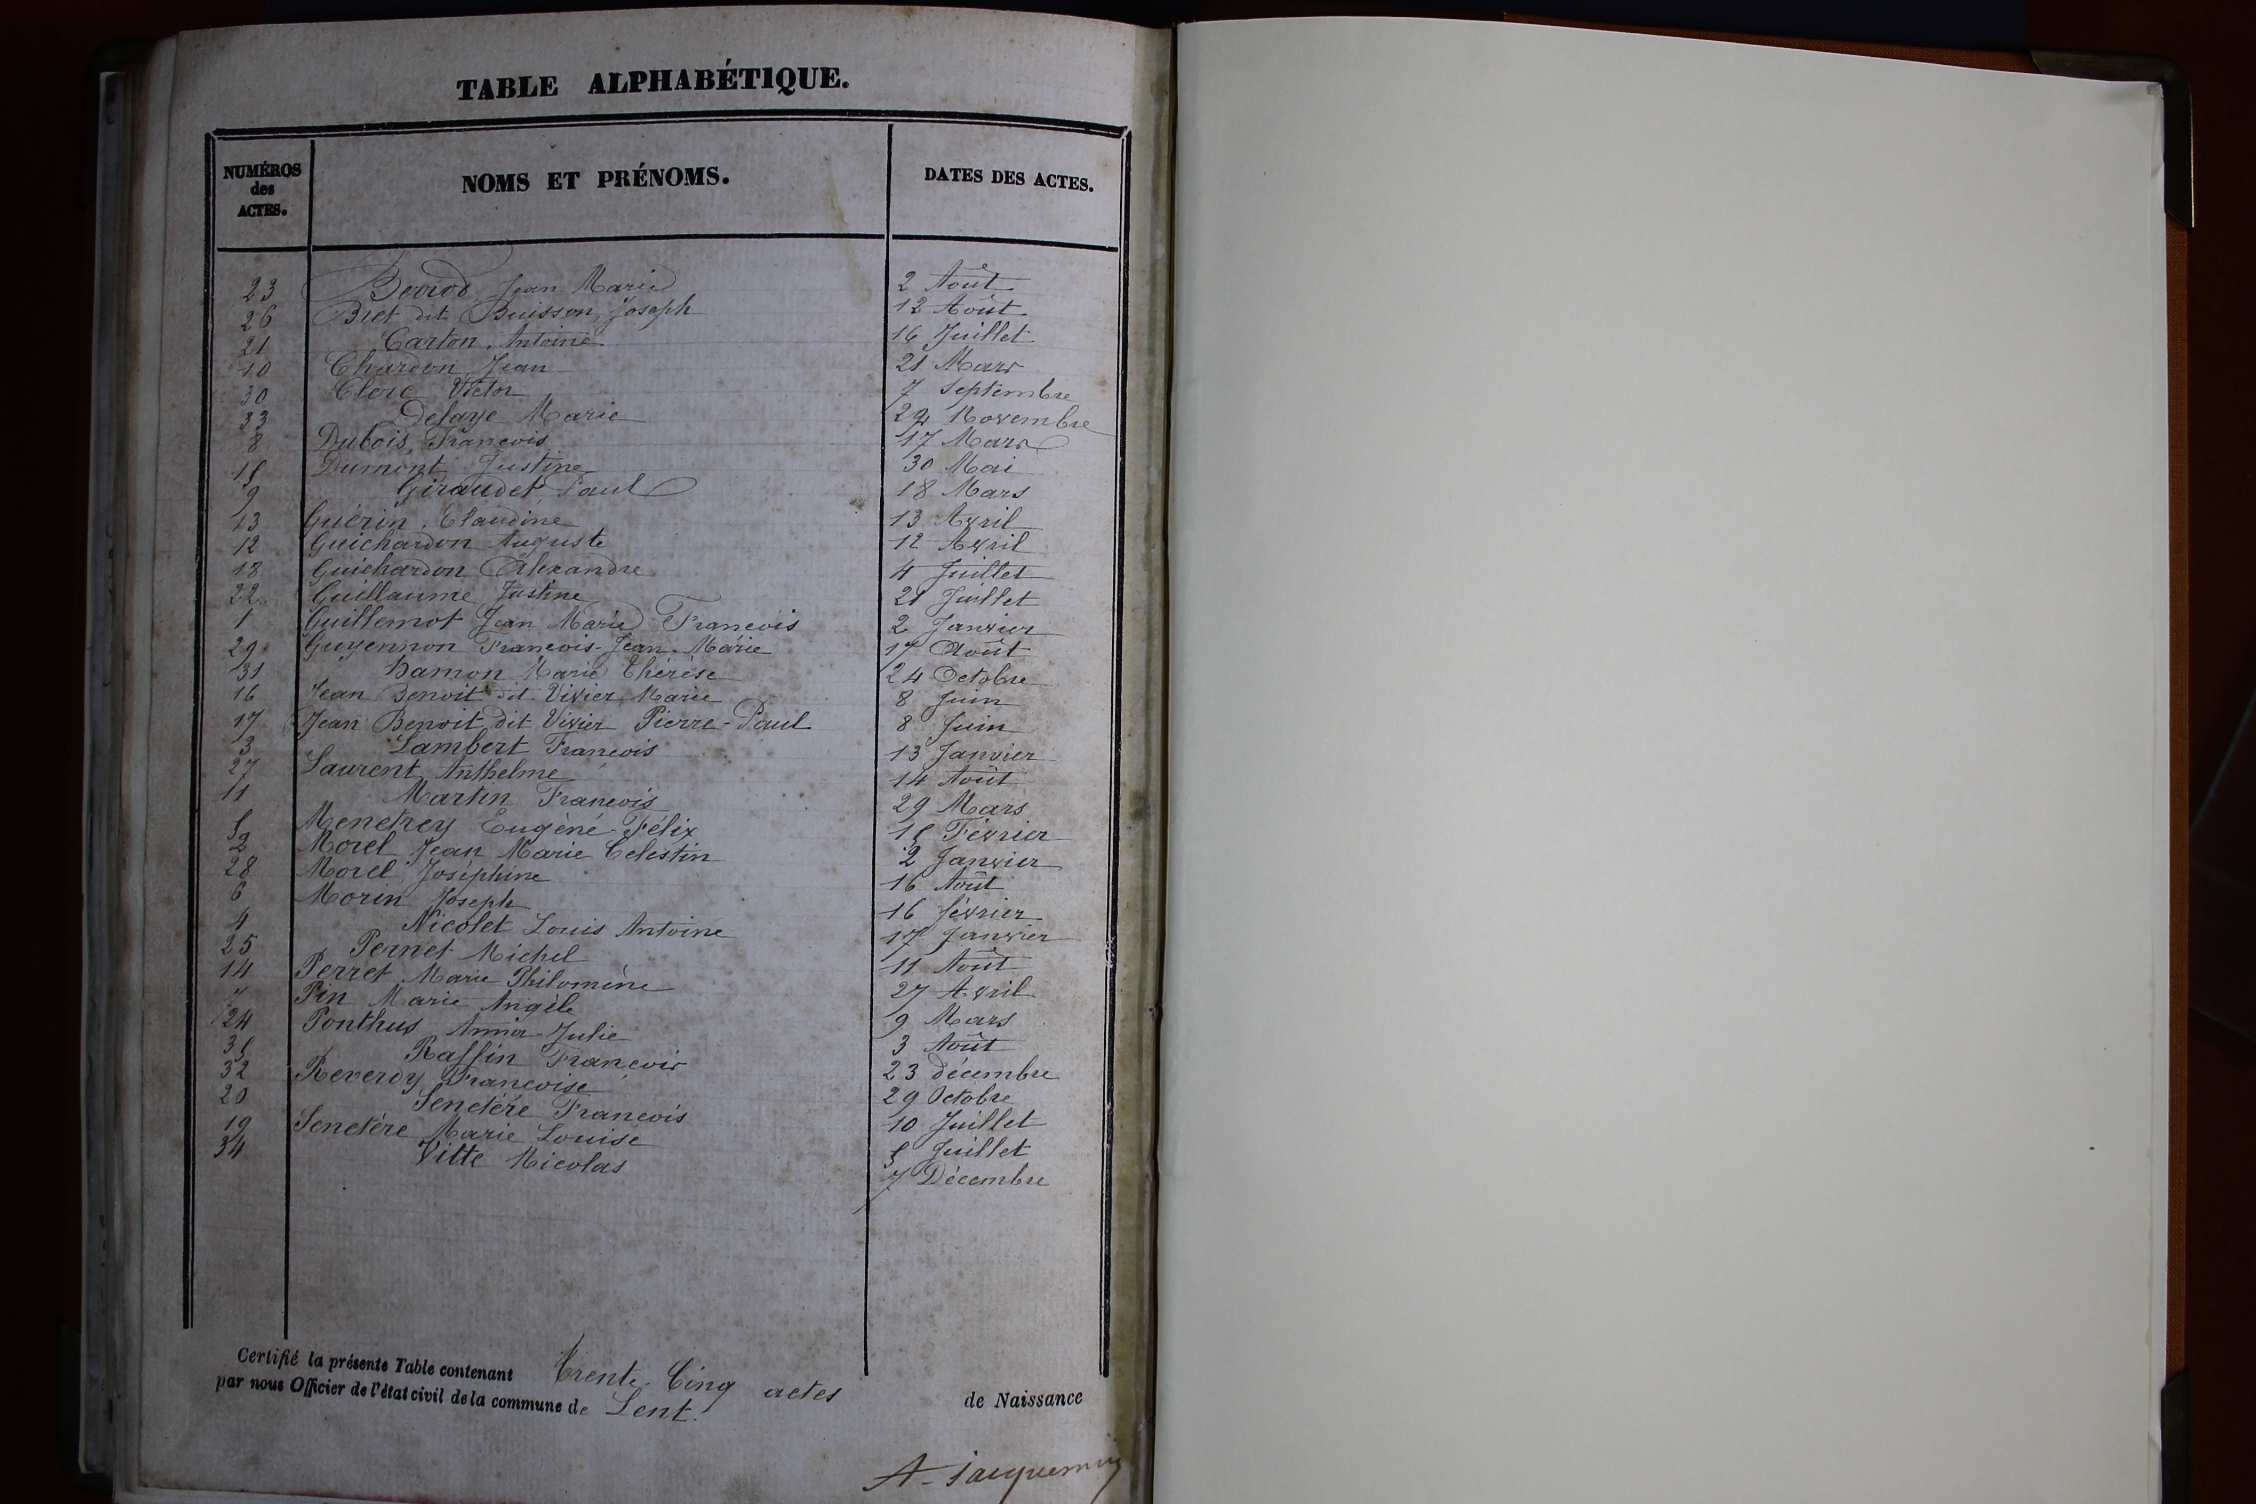 TABLE ALPHABÉTIQUE.
NUMÉROS des ACTES. NOMS ET PRÉNOMS. DATES DES ACTES.
23 Jean Marie 2 Août
26 Biet dit Buisson, Joseph 12 Août
21 Carton, Antoine 16 Juillet
10 Chardon, Jean 21 Mars
30 Clerc Victor 7 Septembre
33 Delaye Marie 24 Novembre
8 Dubois, François 17 Mars
15 Dumont Justine 30 Mai
9 Giraudet, Paul 18 Mars
13 Guérin, Claudine 13 Avril
12 Guichardon Auguste 12 Avril
18 Guichardon Alexandre 4 Juillet
22 Guillaume, Justine 21 Juillet
1 Guillemot Jean Marie François 2 Janvier
29 Guyennon François-Jean-Marie 17 Août
31 Hamon Marie Thérèse 24 Octobre
16 Jean Benoit dit Vivier, Marie 8 Juin
17 Jean Benoit dit Vivier Pierre-Paul 8 Juin
3 Lambert François 13 Janvier
27 Laurent Anthelme 14 Août
11 Martin François 29 Mars
5 Menetrey Eugène-Félix 15 Février
2 Morel Jean Marie Celestin 2 Janvier
28 Morel Joséphine 16 Août
6 Morin Joseph 16 février
4 Nicolet Louis Antoine 17 Janvier
25 Pernet Michel 11 Août
14 Perret Marie Philomène 27 Avril
Pin Marie Angèle 9 Mars
24 Ponthus Anna-Julie 3 Août
35 Raffin François 23 décembre
32 Reverdy Françoise 29 Octobre
20 Senetère François 10 Juillet
19 Senetère Marie Louise 5 Juillet
34 Vitte Nicolas 7 Décembre
Certifié la présente Table contenant Trente-Cinq actes de Naissance
par nous Officier de l'état civil de la commune de Lent.
A. Jacquemin